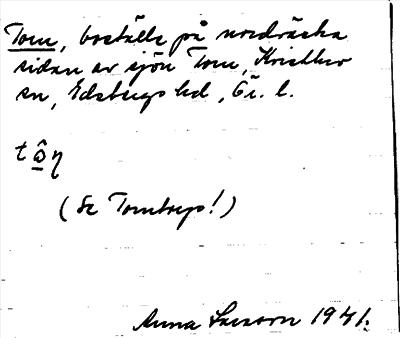 Tom, boställe på nordväska
sidan av sjön Tom, Kristber
sn, Edsbergs hd, Ör. l.
tô̱η
(Se Tomtorp!)
Anna Larsson 1941.